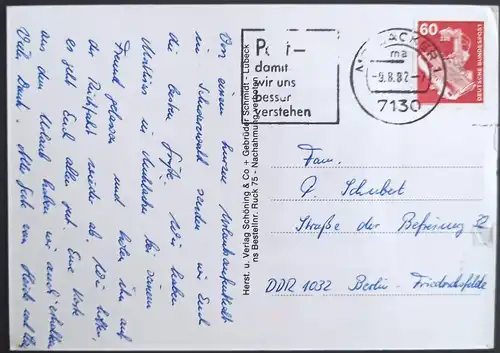 Von einem kurzen Urlaubsaufenthalt
im Schwarzwald senden wir Euch
die besten Grüße. Wir haben
Mathias in bei seinem
Freund gelassen und holen ihn auf
der Rückfahrt wieder ab. Wir hoffen,
es geht Euch allen gut. Eine Karte
aus dem Urlaub haben wir auch erhalten.
Vielen Dank. Alles Gute von
Herst. u. Verlag Schöning & Co + Gebrüder Schmidt - Lübeck
ns Bestellnr. Ruck 75 - Nachahmung verboten
damit
wir uns
besser
verstehen
ACKER 1
ma
-9.8.82-
7130
60
DEUTSCHE BUNDESPOST
Fam.
P. Schubert
Straße der Befreiung 72
DDR 1032 Berlin-Friedrichsfelde